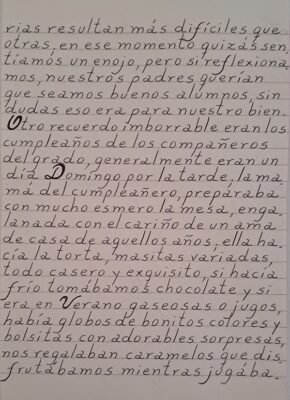 rias resultan más difíciles que
otras, en ese momento quizás sen
tíamos un enojo, pero si reflexiona
mos, nuestros padres querían
que seamos buenos alumnos, sin
dudas eso era para nuestro bien.
Otro recuerdo imborrable eran los
cumpleaños de los compañeros
del grado, generalmente eran un
día Domingo por la tarde, la ma
má del cumpleañero, preparaba
con mucho esmero la mesa, enga
lanada con el cariño de un ama
de casa de aquellos años, ella ha
cía la torta, masitas variadas,
todo casero y exquisito, si hacía
frío tomábamos chocolate y si
era en Verano gaseosas o jugos,
había globos de bonitos colores y
bolsitas con adorables sorpresas,
nos regalaban caramelos que dis
frutábamos mientras jugába.